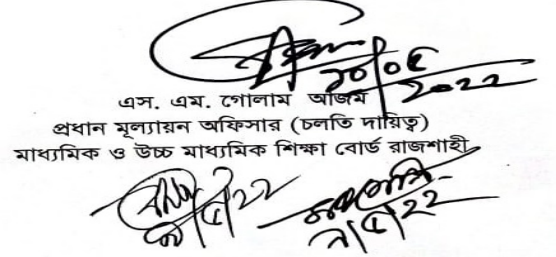 ১০/০৫
২০২২
এস. এম. গোলাম আজম
প্রধান মূল্যায়ন অফিসার (চলতি দায়িত্ব)
মাধ্যমিক ও উচ্চ মাধ্যমিক শিক্ষা বোর্ড রাজশাহী